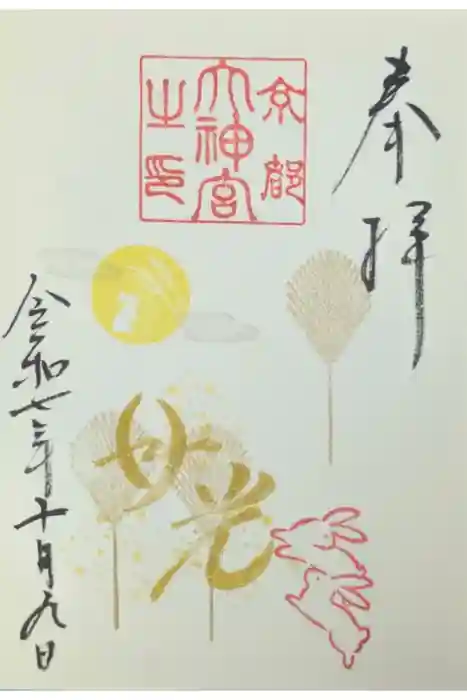 奉拝
京都
大神宮
之印
令和七年十月九日